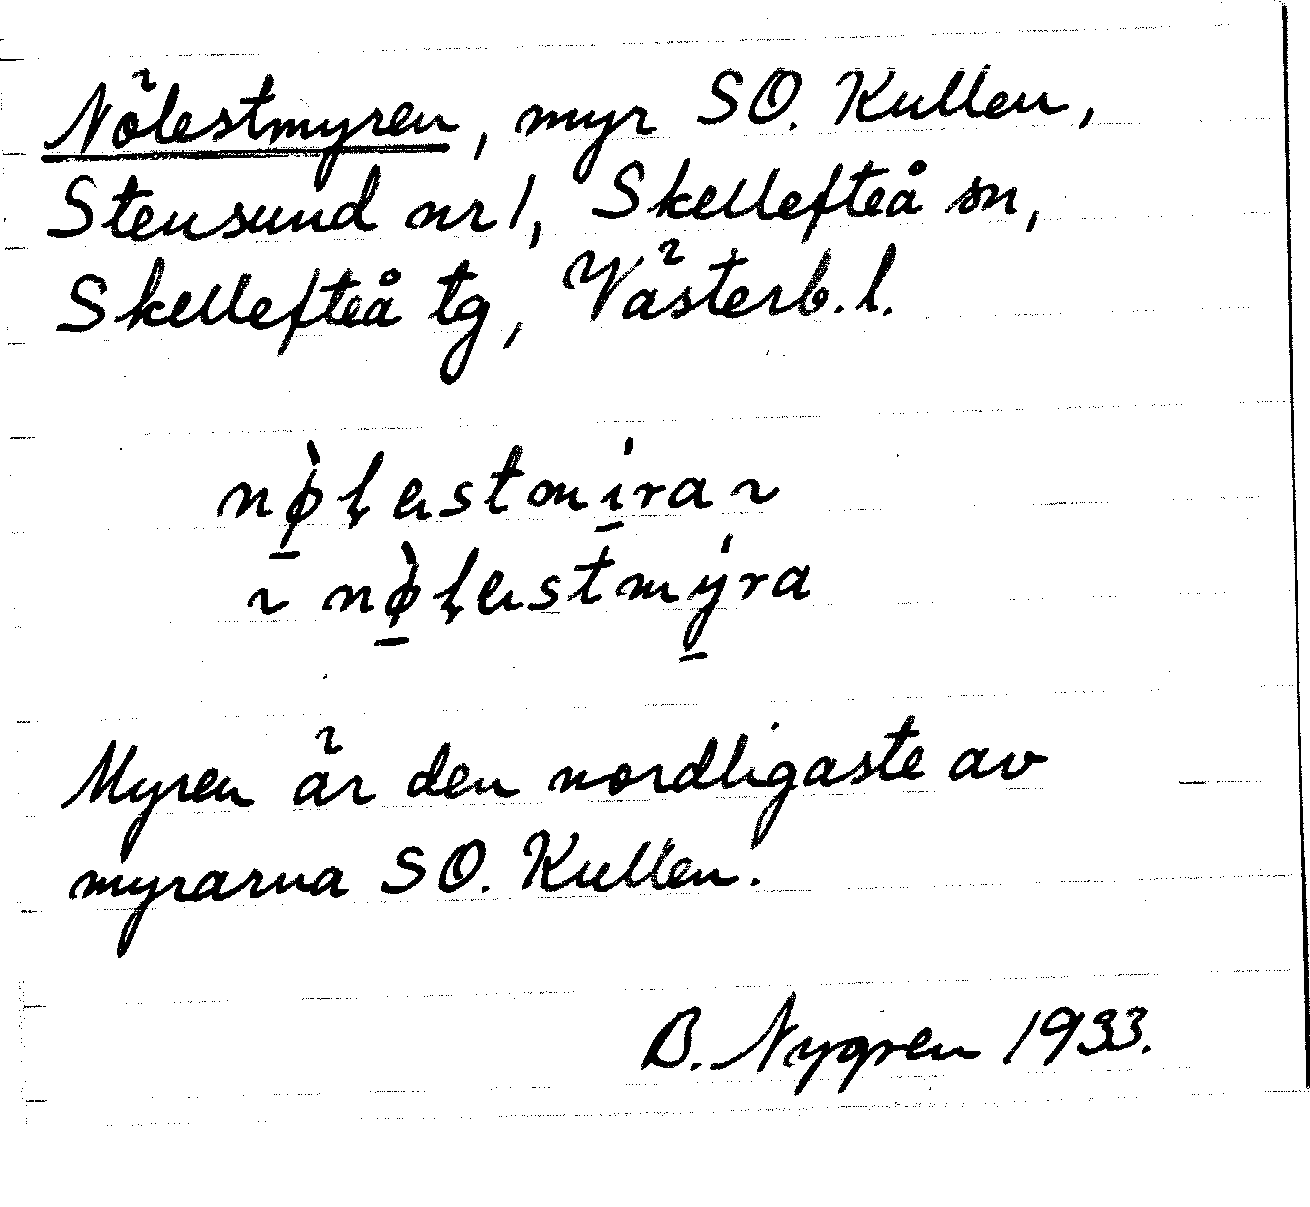 Nölestmyren, myr SO. Kullen,
Stensund nr 1, Skellefteå sn,
Skellefteå tg, Västerb. l.
nø̱̀ɭestmí̱ra ~
~ nø̱̀ɭestmý̱ra
Myren är den nordligaste av
myrarna SO. Kullen.
B. Nygren 1933.